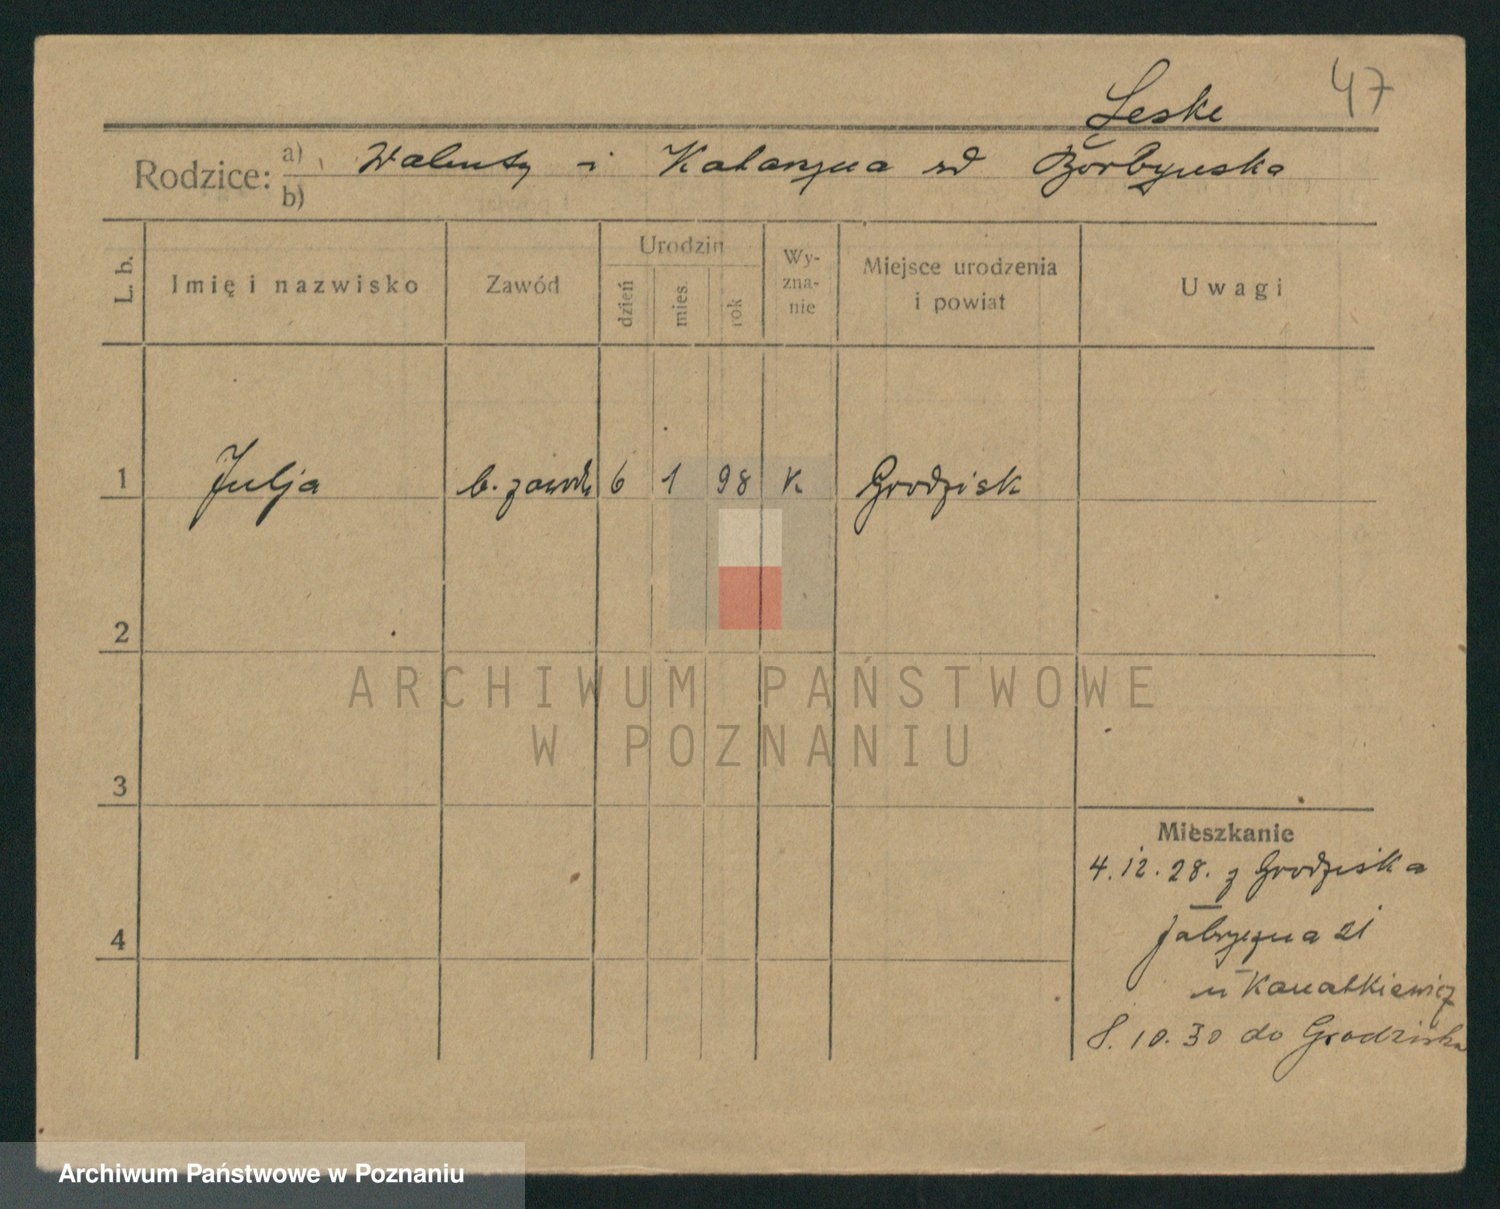 47
Leske
Rodzice: a) Walenty i Katarzyna zd
b)
L. b.
Imię i nazwisko
Zawód
Urodzin
dzień
mies.
rok
Wy-
zna-
nie
Miejsce urodzenia
i powiat
Uwagi
1 Julja b. zawodu 6 1 98 K Grodzisk
2
3
4
Mieszkanie
4.12.28. z Grodziska
Fabryczna 21
u
8.10.30 do Grodziska
ARCHIWUM PAŃSTWOWE
W POZNANIU
Archiwum Państwowe w Poznaniu